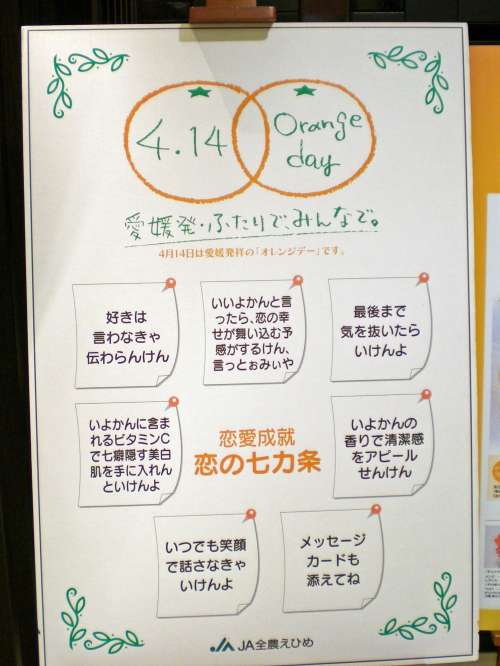 4.14
Orange
day
愛媛発・ふたりで、みんなで。
4月14日は愛媛発祥の「オレンジデー」です。
好きは
言わなきゃ
伝わらんけん
いいよかんと言
ったら、恋の幸
せが舞い込む予
感がするけん、
言っとぉみぃや
最後まで
気を抜いたら
いけんよ
いよかんに含ま
れるビタミンC
で七癖隠す美白
肌を手に入れん
といけんよ
恋愛成就
恋の七カ条
いよかんの
香りで清潔感
をアピール
せんけん
いつでも笑顔
で話さなきゃ
いけんよ
メッセージ
カードも
添えてね
JA全農えひめ